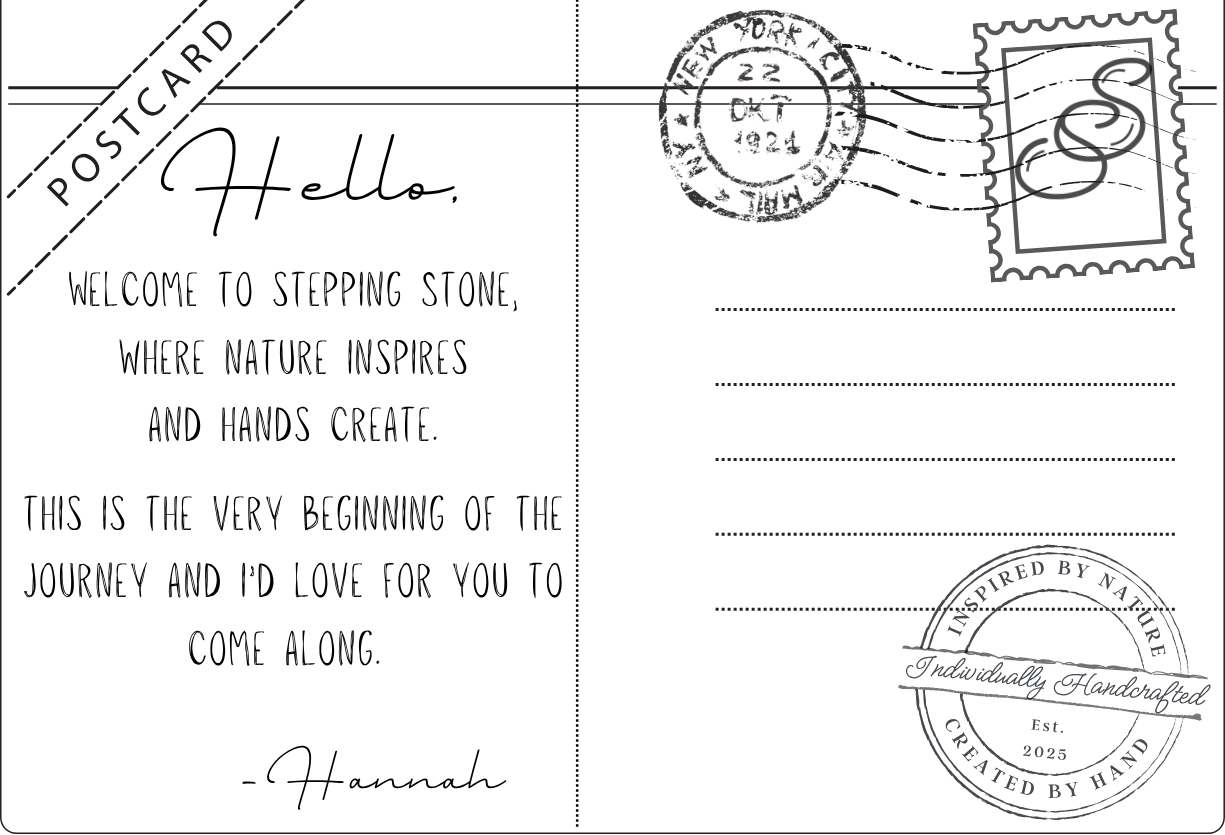 POSTCARD
Hello,
WELCOME TO STEPPING STONE,
WHERE NATURE INSPIRES
AND HANDS CREATE.
THIS IS THE VERY BEGINNING OF THE
JOURNEY AND I'D LOVE FOR YOU TO
COME ALONG.
-Hannah
NEW YORK CITY
22
OKT
1921
AIR MAIL
NY
SS
INSPIRED BY NATURE
Individually Handcrafted
Est.
2025
CREATED BY HAND